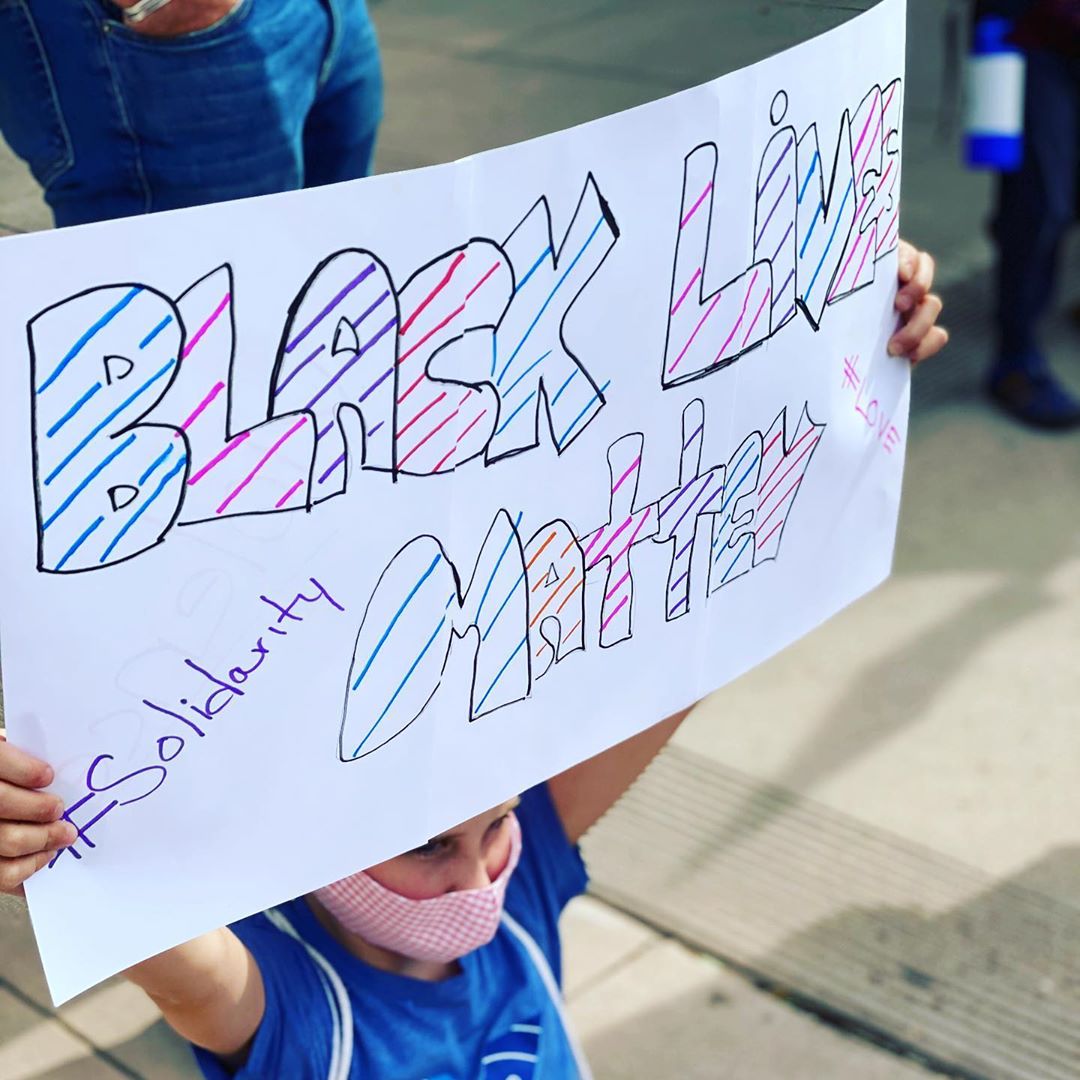 BLACK LiVES
MAttEr
#Solidarity
#LOVE